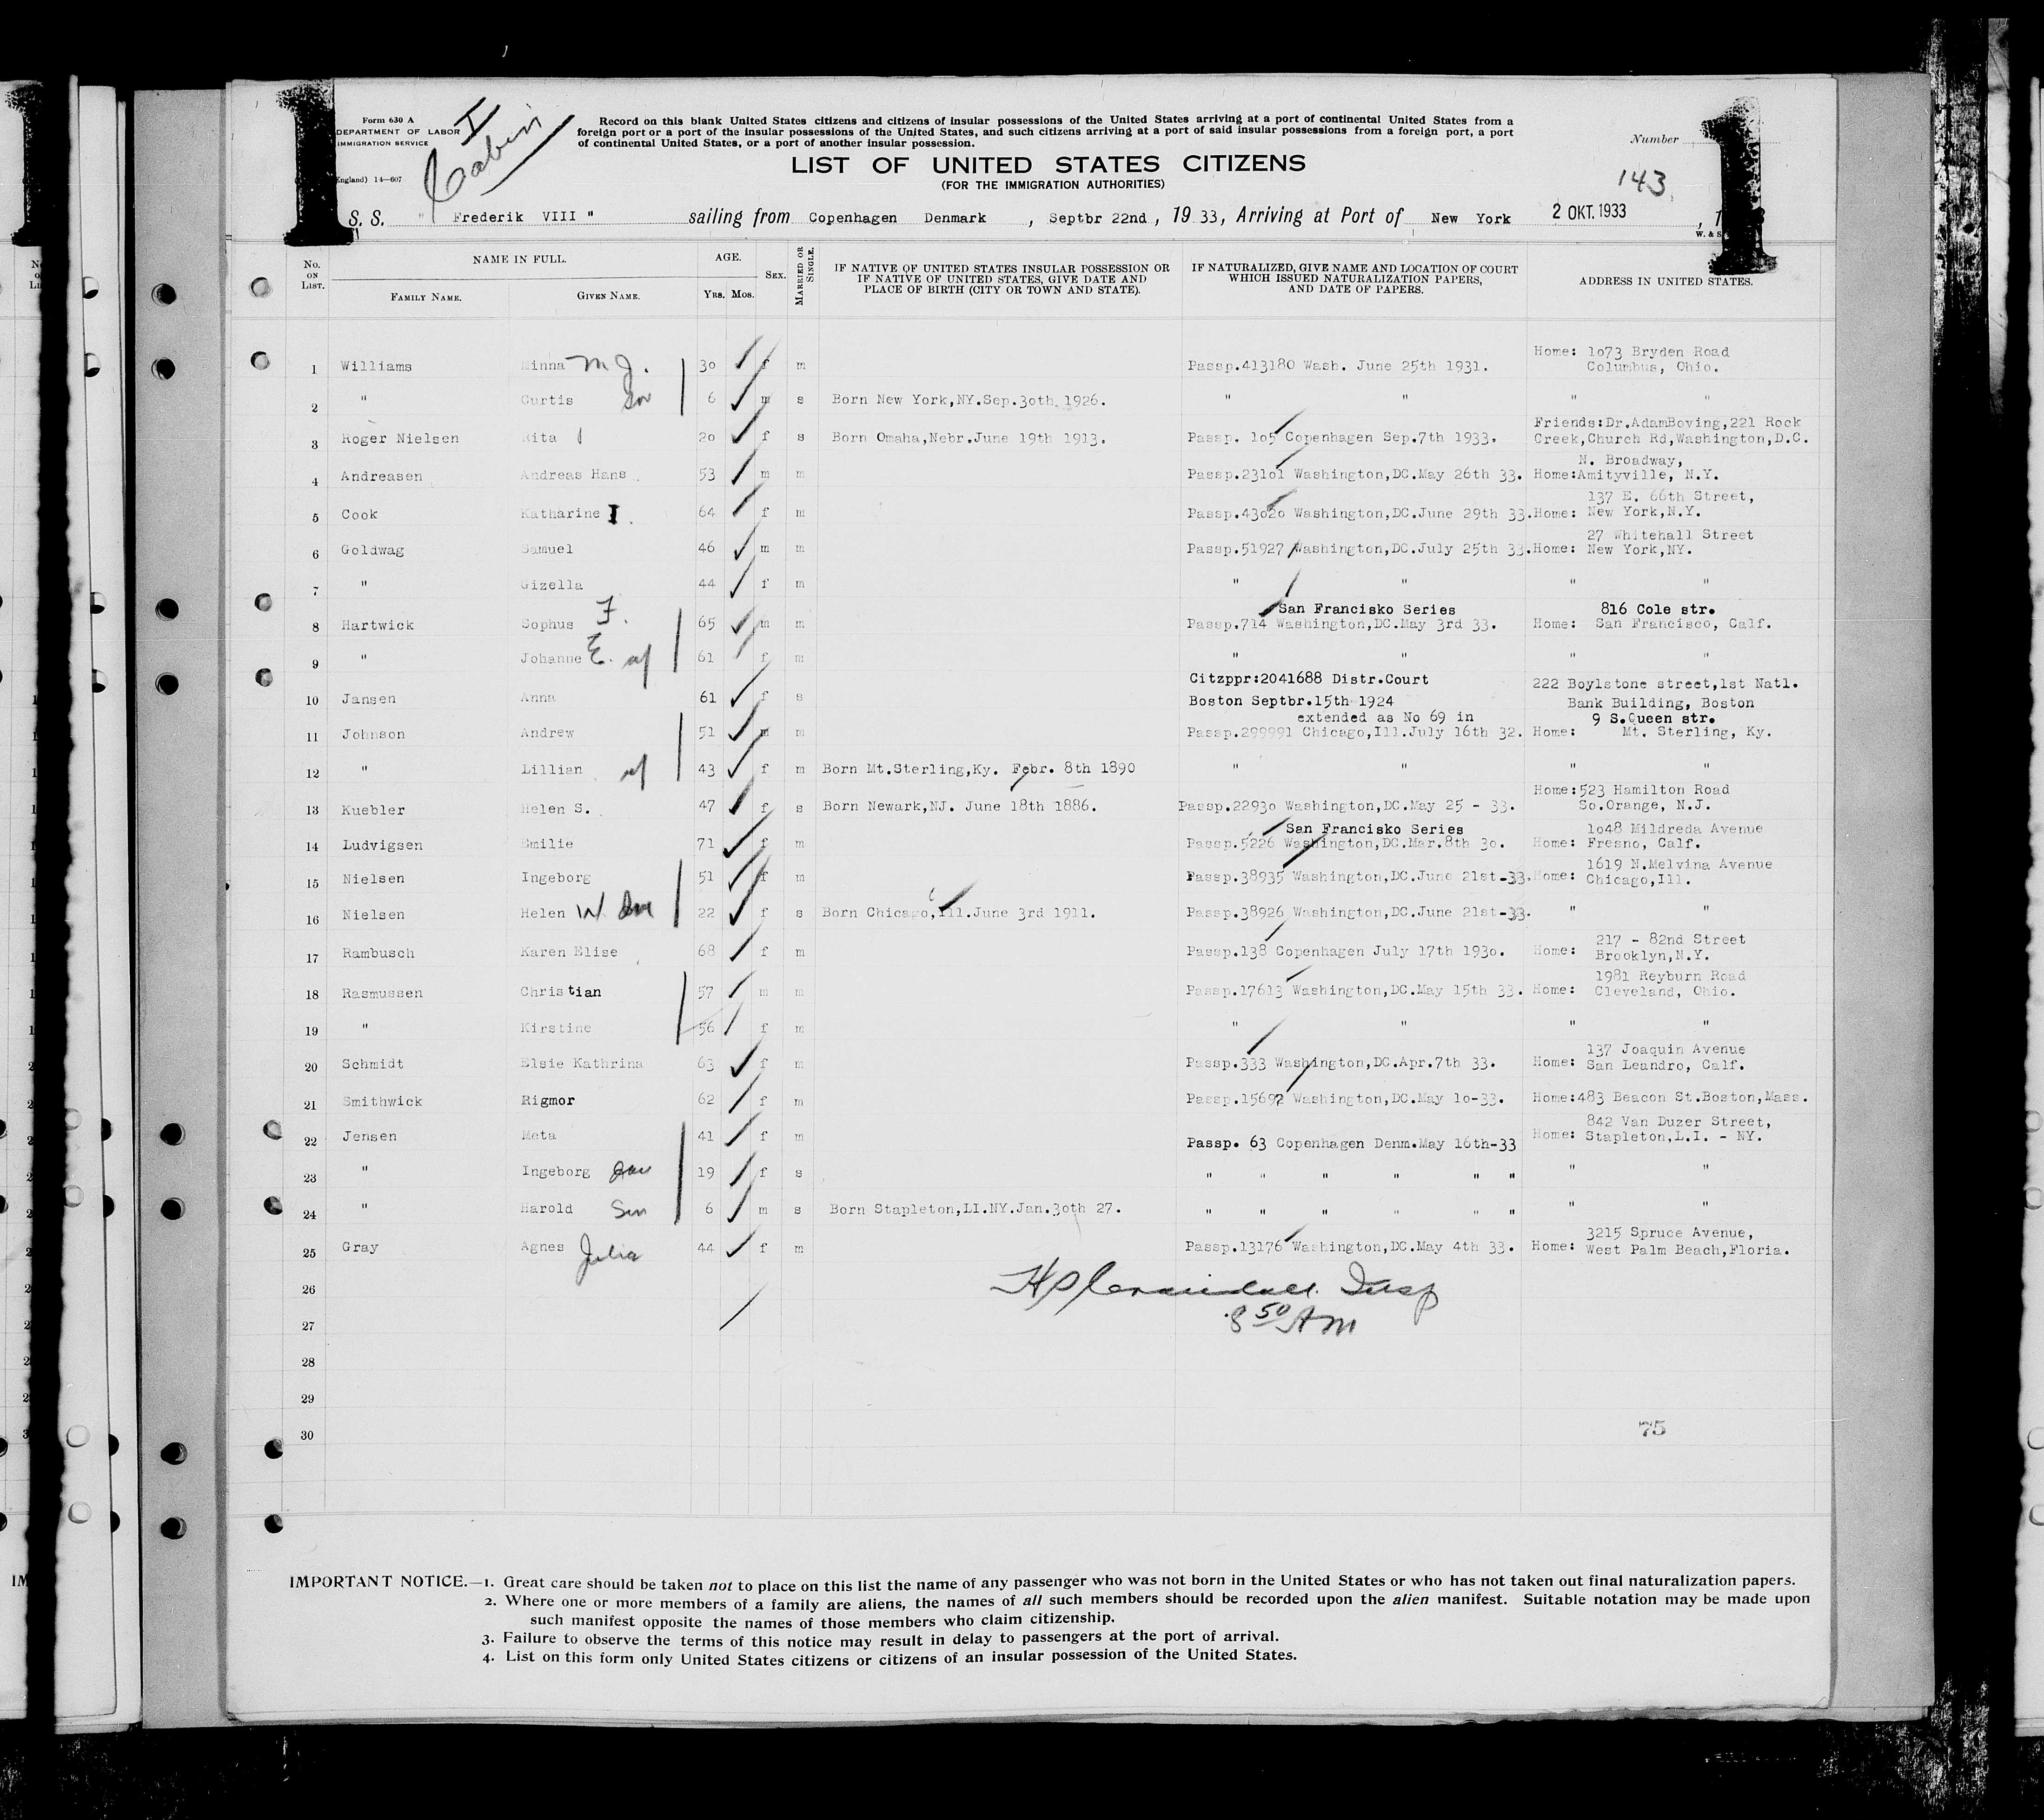 Form 630 A
DEPARTMENT OF LABOR
IMMIGRATION SERVICE
England) 14—607
I
Cabin
1
1
Record on this blank United States citizens and citizens of insular possessions of the United States arriving at a port of continental United States from a
foreign port or a port of the insular possessions of the United States, and such citizens arriving at a port of said insular possessions from a foreign port, a port
of continental United States, or a port of another insular possession.
Number
143
LIST OF UNITED STATES CITIZENS
(FOR THE IMMIGRATION AUTHORITIES)
S. S. " Frederik VIII " sailing from Copenhagen Denmark , Septbr 22nd, 19 33, Arriving at Port of New York 2 OKT. 1933
W. & S
No. ON LIST. NAME IN FULL. AGE. SEX. MARRIED OR SINGLE. IF NATIVE OF UNITED STATES INSULAR POSSESSION OR IF NATIVE OF UNITED STATES, GIVE DATE AND PLACE OF BIRTH (CITY OR TOWN AND STATE). IF NATURALIZED, GIVE NAME AND LOCATION OF COURT WHICH ISSUED NATURALIZATION PAPERS, AND DATE OF PAPERS. ADDRESS IN UNITED STATES.
FAMILY NAME. GIVEN NAME. YRS. MOS.
1 Williams Minna M J. 30 f m Passp.413180 Wash. June 25th 1931. Home: 1o73 Bryden Road Columbus, Ohio.
2 " Curtis Son 6 m s Born New York,NY.Sep.3oth 1926. " " " "
3 Roger Nielsen Rita 2o f s Born Omaha,Nebr.June 19th 1913. Passp. 1o5 Copenhagen Sep.7th 1933. Friends:Dr.AdamBoving,221 Rock Creek,Church Rd,Washington,D.C.
4 Andreasen Andreas Hans 53 m m Passp.231o1 Washington,DC.May 26th 33. Home: N. Broadway, Amityville, N.Y.
5 Cook Katharine I. 64 f m Passp.43o2o Washington,DC.June 29th 33. Home: 137 E. 66th Street, New York,N.Y.
6 Goldwag Samuel 46 m m Passp.51927 Washington,DC.July 25th 33. Home: 27 Whitehall Street New York,NY.
7 " Gizella 44 f m " " " "
8 Hartwick Sophus F. 65 m m San Francisko Series Passp.714 Washington,DC.May 3rd 33. Home: 816 Cole str. San Francisco, Calf.
9 " Johanne E. wf 61 f m " " " "
10 Jansen Anna 61 f s Citzppr:2041688 Distr.Court Boston Septbr.15th 1924 222 Boylstone street,1st Natl. Bank Building, Boston
11 Johnson Andrew 51 m m extended as No 69 in Passp.299991 Chicago,Ill.July 16th 32. Home: 9 S.Queen str. Mt. Sterling, Ky.
12 " Lillian wf 43 f m Born Mt.Sterling,Ky. Febr. 8th 1890 " " " "
13 Kuebler Helen S. 47 f s Born Newark,NJ. June 18th 1886. Passp.2293o Washington,DC.May 25 - 33. Home:523 Hamilton Road So.Orange, N.J.
14 Ludvigsen Emilie 71 f m San Francisko Series Passp.5226 Washington,DC.Mar.8th 3o. Home: 1o48 Mildreda Avenue Fresno, Calf.
15 Nielsen Ingeborg 51 f m Passp.38935 Washington,DC.June 21st-33. Home: 1619 N.Melvina Avenue Chicago,Ill.
16 Nielsen Helen W 22 f s Born Chicago,Ill.June 3rd 1911. Passp.38926 Washington,DC.June 21st-33. " "
17 Rambusch Karen Elise 68 f m Passp.138 Copenhagen July 17th 193o. Home: 217 - 82nd Street Brooklyn,N.Y.
18 Rasmussen Christian 57 m m Passp.17613 Washington,DC.May 15th 33. Home: 1981 Reyburn Road Cleveland, Ohio.
19 " Kirstine 56 f m " " " "
20 Schmidt Elsie Kathrina 63 f m Passp.333 Washington,DC.Apr.7th 33. Home: 137 Joaquin Avenue San Leandro, Calf.
21 Smithwick Rigmor 62 f m Passp.15692 Washington,DC.May 1o-33. Home:483 Beacon St.Boston,Mass.
22 Jensen Meta 41 f m Passp. 63 Copenhagen Denm.May 16th-33 Home: 842 Van Duzer Street, Stapleton,L.I. - NY.
23 " Ingeborg dau 19 f s " " " " " " " "
24 " Harold Son 6 m s Born Stapleton,LI.NY.Jan.3oth 27. " " " " " " " "
25 Gray Agnes Julia 44 f m Passp.13176 Washington,DC.May 4th 33. Home: 3215 Spruce Avenue, West Palm Beach,Floria.
26
Insp
27
8 50 AM
28
29
30
75
IMPORTANT NOTICE.—1. Great care should be taken not to place on this list the name of any passenger who was not born in the United States or who has not taken out final naturalization papers.
2. Where one or more members of a family are aliens, the names of all such members should be recorded upon the alien manifest. Suitable notation may be made upon
such manifest opposite the names of those members who claim citizenship.
3. Failure to observe the terms of this notice may result in delay to passengers at the port of arrival.
4. List on this form only United States citizens or citizens of an insular possession of the United States.